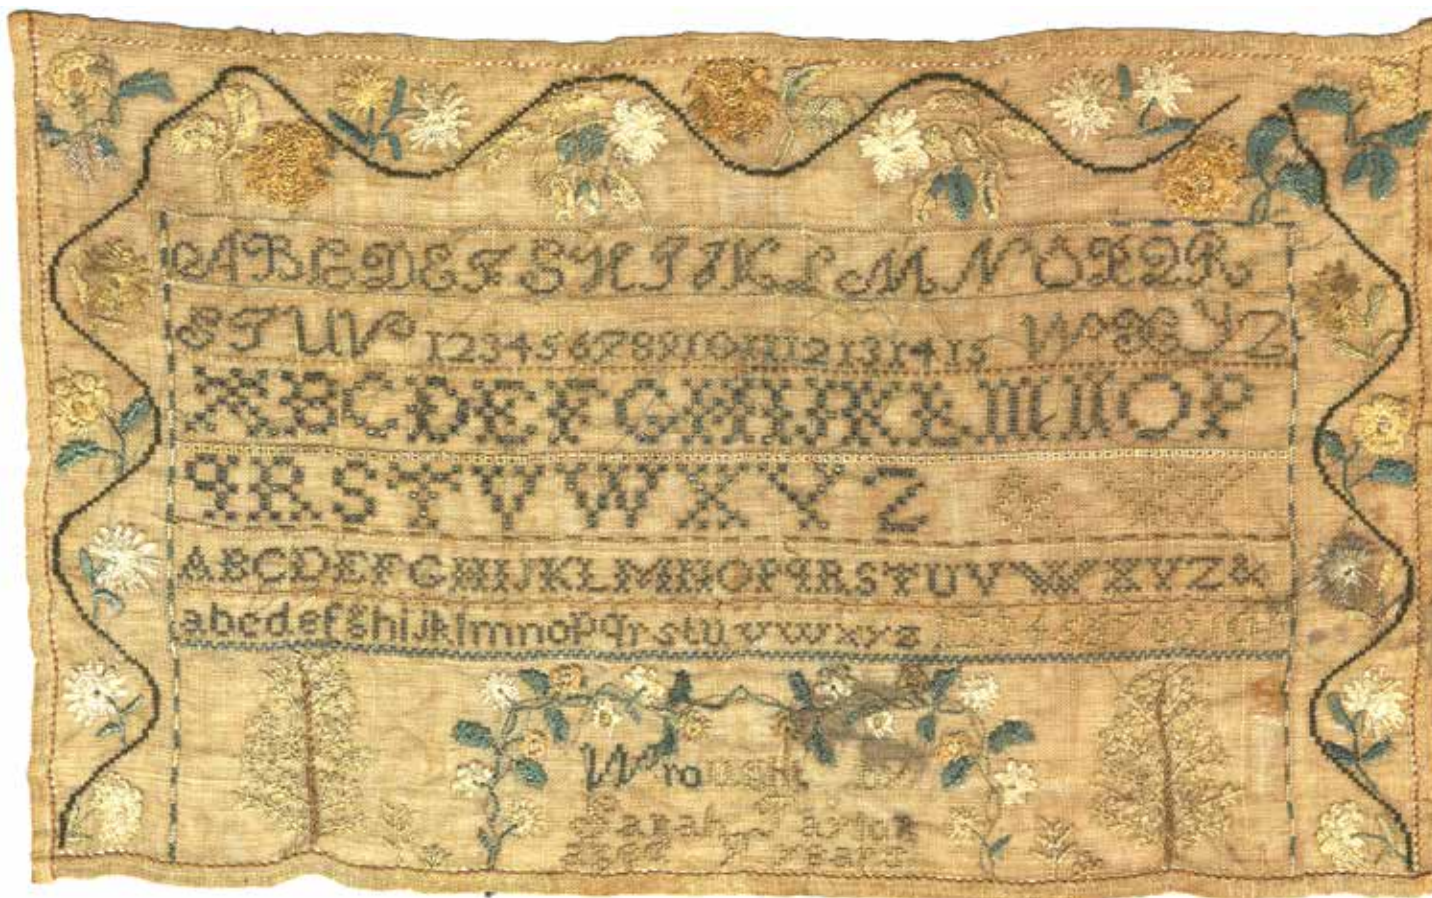 A B C D E F G H I J K L M N O P Q R
S T U V 1 2 3 4 5 6 7 8 9 10 11 12 13 14 15 W X Y Z
A B C D E F G H I J K L M N O P
Q R S T V W X Y Z
A B C D E F G H I J K L M N O P Q R S T U V W X Y Z &
a b c d e f g h i j k l m n o p q r s t u v w x y z
Wrought by
Sarah Taylor
aged 7 years